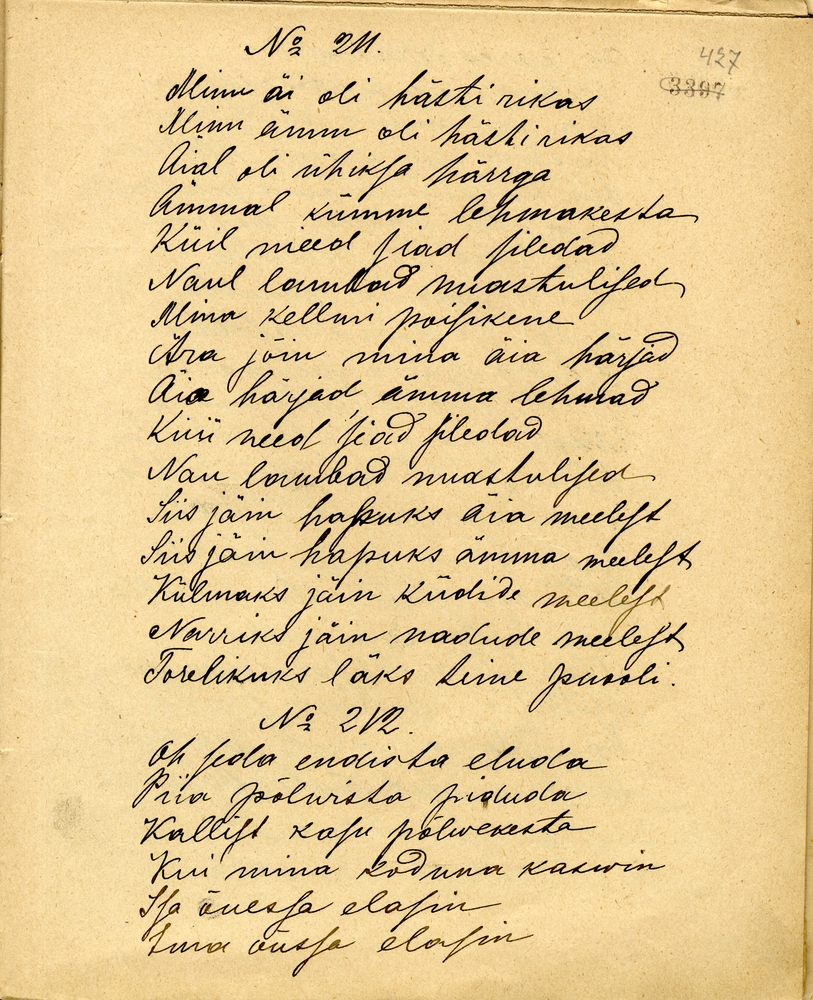 № 211.
427
3397
Minu äi oli hästi rikas
Minu ämm oli hästi rikas
Äial oli ühiksa härrga
Ämmal kümme lehmakesta
Küil need siad siledad
Naul lambad nuastulised
Mina kellmi poisikene
Ära jõin mina äia härjad
Äia härjad ämma lehmad
Küü need siad siledad
Nau lambad nuastulised
Siis jäin hapuks äia meelest
Siis jäin hapuks ämma meelest
Külmaks jäin küdide meelest
Narriks jäin nadude meelest
Torelikuks läks teine puooli.
№ 212.
Oh seda endista eluda
Piia põlwista piduda
Kallist kasu põlwekesta
Kui mina koduna kaswin
Isa õuessa elasin
Ema õussa elasin